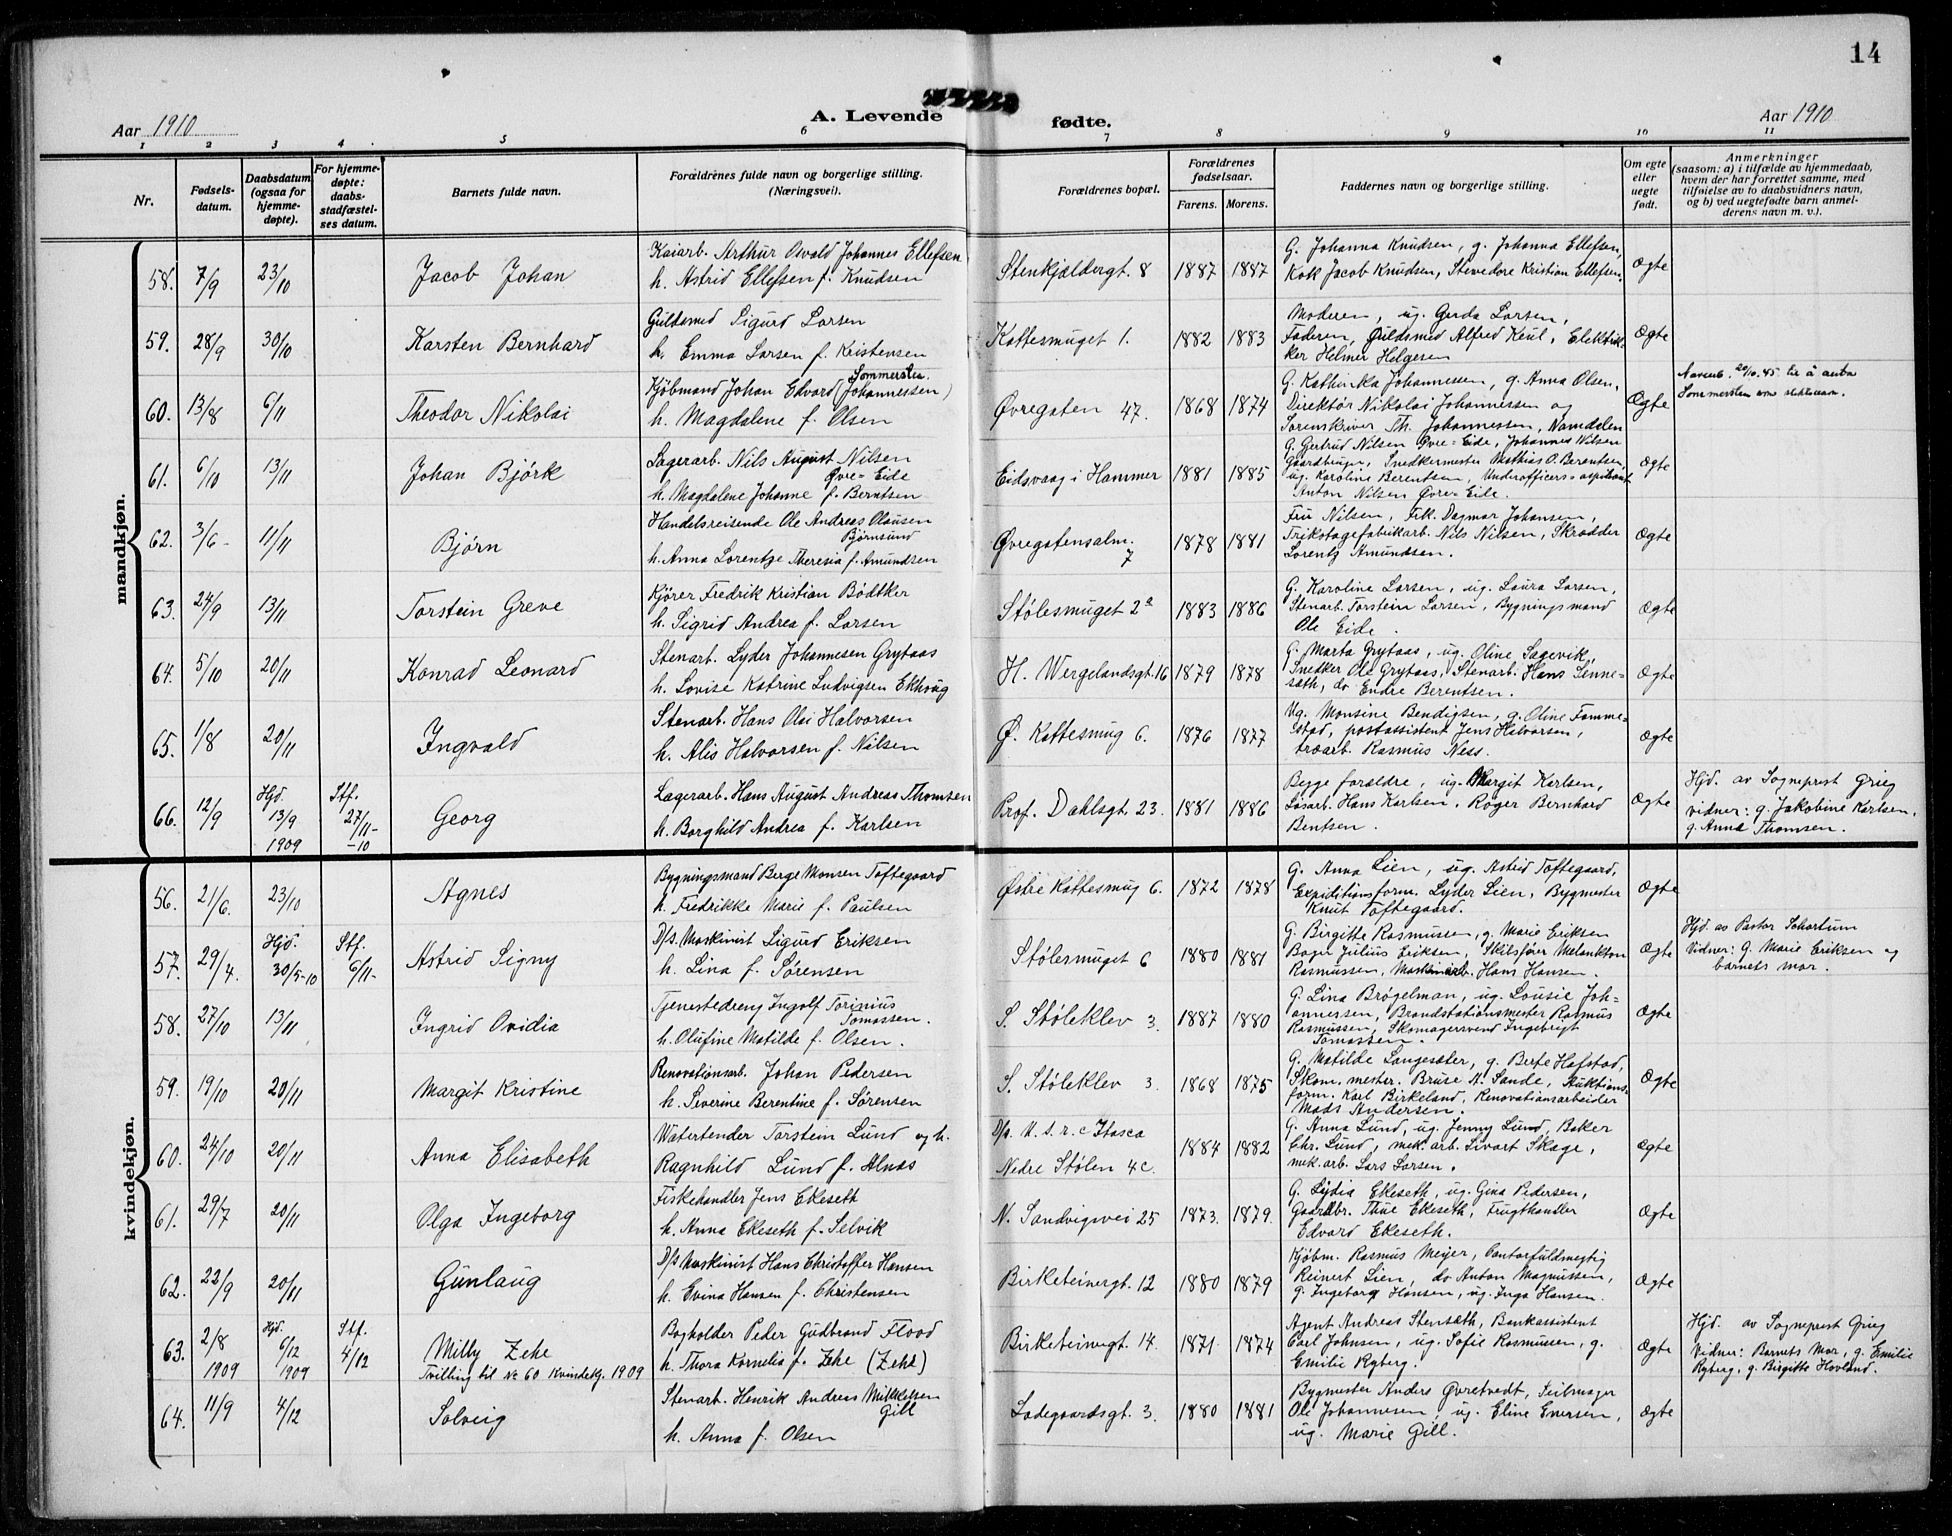 14
Aar 1910
A. Levende fødte.
Aar 1910
1 2 3 4 5 6 7 8 9 10 11
Nr.
Fødsels-
datum.
Daabsdatum
(ogsaa for
hjemme-
døpte).
For hjemme-
døpte:
daabs-
stadfæstel-
ses datum.
Barnets fulde navn.
Forældrenes fulde navn og borgerlige stilling.
(Næringsvei).
Forældrenes bopæl.
Forældrenes
fødselsaar.
Farens. Morens.
Faddernes navn og borgerlige stilling.
Om egte
eller
uegte
født.
Anmerkninger
(saasom: a) i tilfælde av hjemmedaab,
hvem der har forrettet samme, med
tilføielse av to daabsvidners navn,
og b) ved uegtefødte barn anmel-
derens navn m. v.).
mandkjøn.
58. 7/9 23/10 Jacob Johan
Kaiarb. Arthur Osvald Johannes Ellefsen
h. Astrid Ellefsen f. Knudsen
Stenkjældergt. 8 1887 1887
G. Johanna Knudsen, g. Johanna Ellefsen,
Kok Jacob Knudsen, Stevedore Kristian Ellefsen.
Ægte
59. 28/9 30/10 Karsten Bernhard
Guldsmed Sigurd Larsen
h. Emma Larsen f. Kristensen
Kattesmuget 1. 1882 1883
Moderen, ug. Gerda Larsen,
Faderen, Guldsmed Alfred Keul, Elektrik-
ker Helmer Helgesen
Ægte
60. 13/8 6/11 Theodor Nikolai
Sommersten.
Kjøbmand Johan Edvard (Johannessen)
h. Magdalene f. Olsen
Øvregaten 47. 1868 1874
G. Kathinka Johannessen, g. Anna Olsen,
Direktør Nikolai Johannessen og
Sorenskriver Th. Johannessen, Namdalen
Ægte
20/10.45 til å anta
Sommersten som slektsnavn.
61. 6/10 13/11 Johan Bjørk
Lagerarb. Nils August Nilsen
Øvre-Eide
h. Magdalene Johanne f. Berntsen
Eidsvaag i Hammer 1881 1885
G. Gertrud Nilsen Øvre-Eide, Johannes Nilsen
Gaardbruger, Snedkermester Mathias O. Berentsen,
ug. Karoline Berentsen, Underofficers-aspirant
Anton Nilsen Øvre-Eide.
Ægte
62. 3/6- 11/11 Bjørn
Handelsreisende Ole Andreas Olausen
Bjørnsund
h. Anna Lorentze Theresia f. Amundsen
Øvregatensalm.
7
1878 1881
Fru Nilsen, Frk. Dagmar Johansen,
Trikotagefabrikarb. Nils Nilsen, Skrædder
Lorentz Amundsen.
Ægte
63. 24/9 13/11 Torstein Greve
Kjører Fredrik Kristian Bødtker
h. Sigrid Andrea f. Larsen
Stølesmuget 2a 1883 1886
G. Karoline Larsen, ug. Laura Larsen,
Stenarb. Torstein Larsen, Bygningsmand
Ole Eide.
Ægte
64. 5/10 20/11 Konrad Leonard
Stenarb. Lyder Johannesen Grytaas
h. Lovise Katrine Ludvigsen Ekhaug
H. Wergelandsgt. 16 1879 1878
G. Marta Grytaas, ug. Oline Sagevik,
Snedker Ole Grytaas, Stenarb. Hans Sinne-
sæth, do Endre Berentsen.
Ægte
65. 1/8 20/11 Ingvald
Stenarb. Hans Olai Halvorsen
h. Alis Halvorsen f. Nilsen
Ø. Kattesmug 6. 1876 1877
Ug. Monsine Bendigsen, g. Oline Tomme-
stad, postassistent Jens Halvorsen,
troarb. Rasmus Ness.
Ægte
66. 12/9 Hjd. 13/9 1909 Stf. 27/11-10 Georg
Lagerarb. Hans August Andreas Thomsen
h. Borghild Andrea f. Karlsen
Prof. Dahlsgt. 23. 1881 1886
Begge forældre, ug. Margit Karlsen,
Løsarb. Hans Karlsen, Roger Bernhard
Bentsen.
Ægte
Hjd. av Sogneprest Grieg
vidner: g. Jakobine Karlsen,
g. Anna Thomsen.
kvindekjøn.
56. 21/6. 23/10 Agnes
Bygningsmand Berge Monsen Toftegaard
h. Fredrikke Marie f. Paulsen
Østre Kattesmug 6. 1872 1878
G. Anna Lien, ug. Astrid Toftegaard,
Expiditionsform. Lyder Lien, Bygmester
Knut Toftegaard.
Ægte
57. 29/4. Hjd. 30/5-10 Stf. 6/11- Astrid Signy
D/s. Maskinist Sigurd Eriksen
h. Lina f. Sørensen
Stølesmuget 6 1880 1881
G. Birgitte Rasmussen, g. Marie Eriksen
Bager Julius Eriksen, Skibsfører Melankton
Rasmussen, Maskinarb. Hans Hansen.
Ægte
Hjd. av Pastor Schartum
Vidner: G. Marie Eriksen og
barnets mor.
58. 27/10 13/11 Ingrid Ovidia
Tjenestedreng Ingolf Torinius
Tomassen.
h. Olufine Matilde f. Olsen.
S. Støleklev 3. 1887 1880
G. Lina Brøgelman, ug. Lousie Joh-
annersen, Brandstationsmester Rasmus
Rasmussen, Skomagersvend Ingebrigt
Tomassen.
Ægte
59. 19/10 20/11 Margit Kristine
Renovationsarb. Johan Pedersen
h. Severine Berentine f. Sørensen
S. Støleklev 3. 1868 1875
G. Matilde Langesæter, g. Berte Hafstad,
Skom. mester. Bruse M. Sande, Auktions-
form. Karl Birkeland, Renovationsarbeider
Mads Andersen.
Ægte
60. 24/10 20/11 Anna Elisabeth
Watertender Torstein Lund og h.
Ragnhild Lund f. Alnæs
D/s. U. s. r. c Itasca
Nedre Stølen 4c.
1884 1882
G. Anna Lund, ug. Jenny Lund, Baker
Chr. Lund, mek. arb. Sivart Skage,
mek. arb. Lars Larsen.
Ægte
61. 29/7 20/11 Olga Ingeborg
Fiskehandler Jens Ekeseth
h. Anna Ekeseth f. Selvik
N. Sandvigsvei 25 1873. 1879.
G. Lydia Ekeseth, ug. Gina Pedersen,
Gaardbr. Thue Ekeseth, Frugthandler
Edvard Ekeseth.
Ægte
62. 22/9 20/11 Gunlaug
D/s Maskinist Hans Christoffer Hansen
h. Evina Hansen f. Christensen
Birketeinergt. 12 1880 1879
Kjøbm. Rasmus Meyer, Contorfuldmegtig
Reinert Lien, do Anton Magnussen,
g. Ingeborg Hansen, ug. Inga Hansen.
Ægte
63. 2/8 1909 Hjd. 6/12 1909 Stf. 4/12 Milly Zehe
Tvilling til No 60 Kvindekj. 1909
Bogholder Peder Gudbrand Flood
h. Thora Kornelia f. Zehe (Zehl)
Birketeinergt 14. 1871. 1874
Agent Andreas Stensæth, Bankassistent
Carl Johnsen, ug. Sofie Rasmussen, g.
Emilie Ryberg.
Ægte
Hjd. av Sogneprest Grieg
Vidner: Barnets Mor, g. Emilie
Ryberg, g. Birgitte Hovland.
64. 11/9 4/12 Solveig
Stenarb. Henrik Andreas Mikkelsen
Gill
h. Anna f. Olsen
Ladegaardsgt. 3. 1880 1881
Bygmester Anders Øvretvedt, Seilmager
Ole Johannesen, ug. Eline Eversen,
ug. Marie Gill.
Ægte